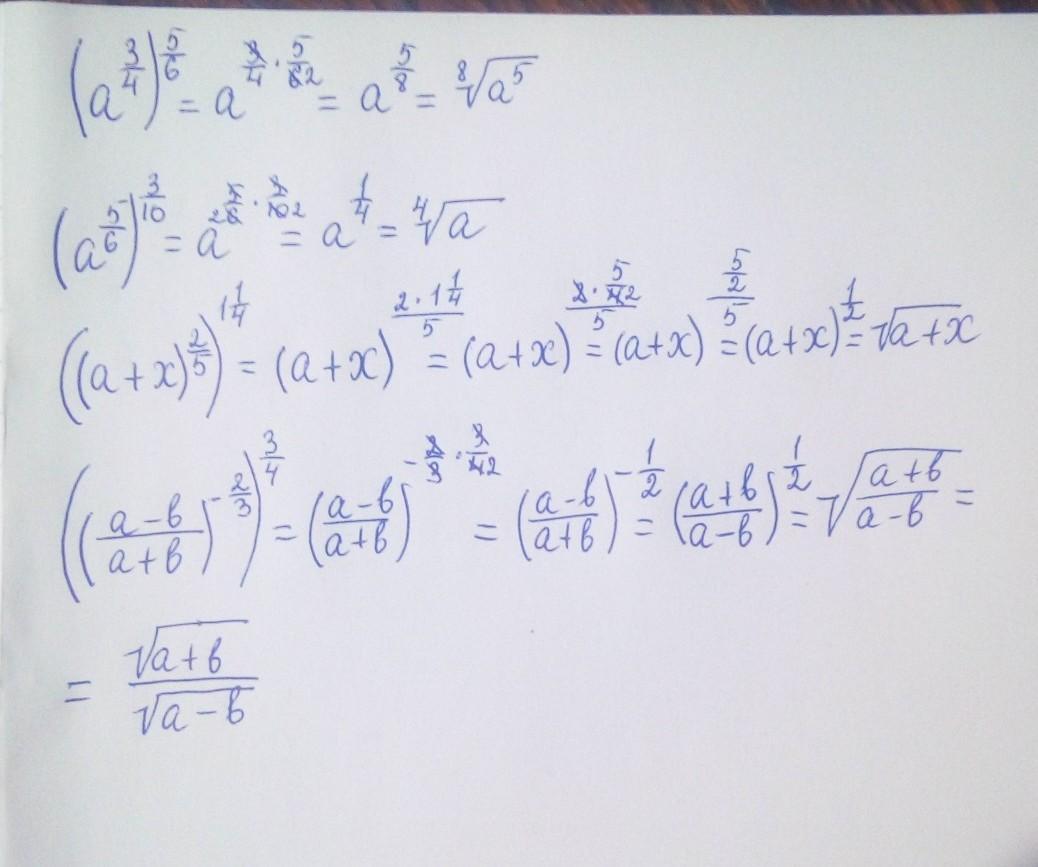 (a^{3/4})^{5/6} = a^{3/4 · 5/6 2} = a^{5/8} = ⁸√a⁵
(a^{5/6})^{3/10} = a^{2 5/6 · 3/10 2} = a^{1/4} = ⁴√a
((a+x)^{2/5})^{1 1/4} = (a+x)^{(2 · 1 1/4)/5} = (a+x)^{(2 · 5/4 2)/5} = (a+x)^{(5/2)/5} = (a+x)^{1/2} = √a+x
(((a-в)/(a+в))^{-2/3})^{3/4} = ((a-в)/(a+в))^{-2/3 · 3/4 2} = ((a-в)/(a+в))^{-1/2} = ((a+в)/(a-в))^{1/2} = √((a+в)/(a-в)) =
= √(a+в)/√(a-в)